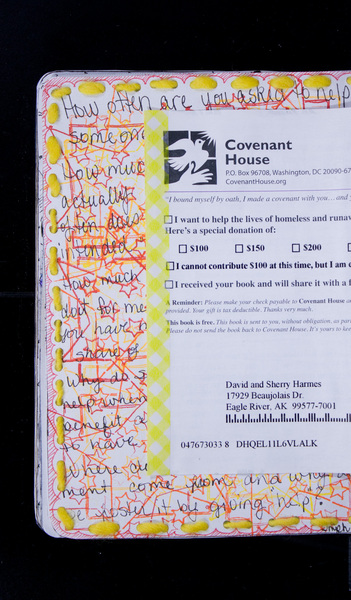 How often are you asked to help
someon
How muc
actually
often does
intended
How much
don't for me
you have b
share of
Why do s
help when
benefit
to have
Where
ment come from and why
we foster it by giving help?
Covenant
House
P.O. Box 96708, Washington, DC 20090-67
CovenantHouse.org
"I bound myself by oath, I made a covenant with you... and
I want to help the lives of homeless and runav
Here's a special donation of:
$100 $150 $200
I cannot contribute $100 at this time, but I am e
I received your book and will share it with a f
A Reminder: Please make your check payable to Covenant House
provided. Your gift is tax deductible. Thanks very much.
This book is free. This book is sent to you, without obligation, as par
Please do not send the book back to Covenant House. It's yours to kee
David and Sherry Harmes
17929 Beaujolais Dr.
Eagle River, AK 99577-7001
047673033 8 DHQEL11L6VLALK